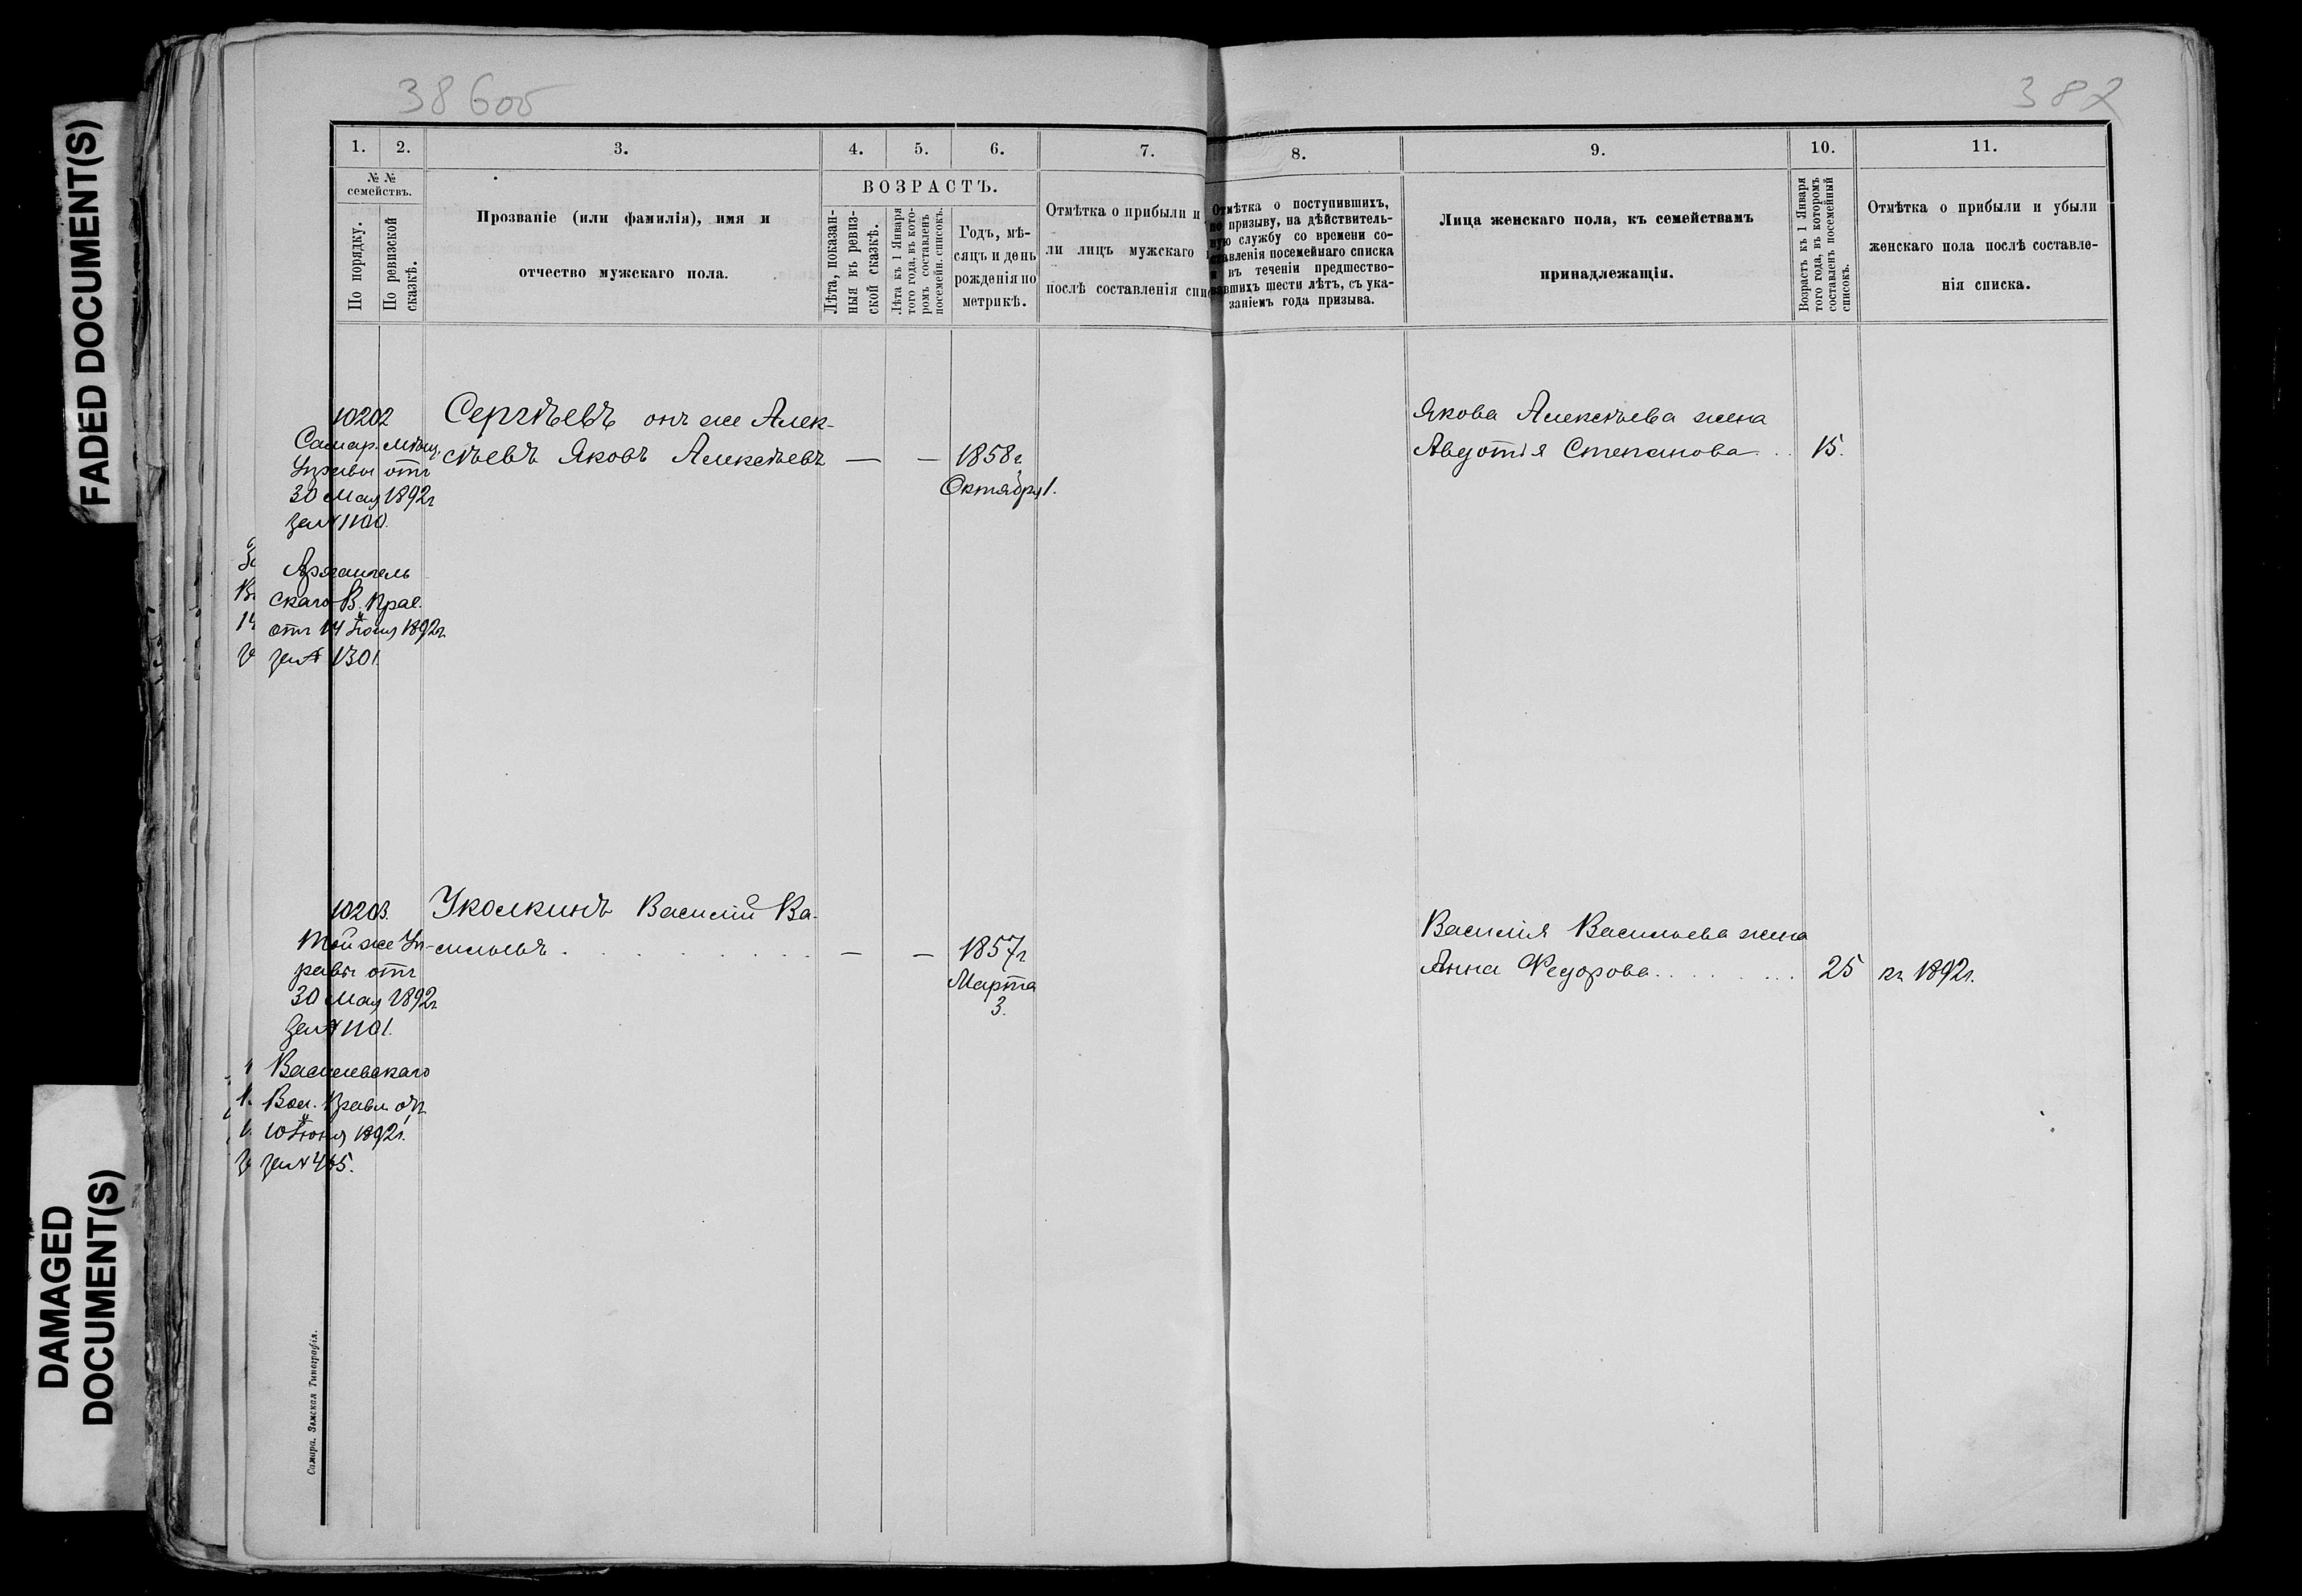 FADED DOCUMENT(S)
DAMAGED
DOCUMENT(S)
386об
382
1.
2.
3.
4.
5.
6.
7.
№ №
семействъ.
По порядку.
По ревизской
сказкѣ.
Прозваніе (или фамилія), имя и
отчество мужскаго пола.
ВОЗРАСТЪ.
Лѣта, показан-
ныя въ ревиз-
ской сказкѣ.
Лѣта къ 1 Января
того года, въ кото-
ромъ составленъ
посемейн. списокъ.
Годъ, мѣ-
сяцъ и день
рожденія по
метрикѣ.
Отмѣтка о прибыли и
ли лицъ мужскаго
послѣ составленія спи
8.
9.
10.
11.
Отмѣтка о поступившихъ,
по призыву, на дѣйствитель-
ную службу со времени со-
ставленія посемейнаго списка
и въ теченіи предшество-
вавшихъ шести лѣтъ, съ ука-
заніемъ года призыва.
Лица женскаго пола, къ семействамъ
принадлежащія.
Возрастъ къ 1 Января
того года, въ которомъ
составленъ посемейный
списокъ.
Отмѣтка о прибыли и убыли
женскаго пола послѣ составле-
нія списка.
10202
Самар. Мѣщ.
Управы отъ
30 Мая 1892г
за № 1100.
Архангель
скаго В. Прав.
отъ 14 Іюня 1892г.
за № 1301
Сергѣевъ онъ же Алек-
сѣевъ Яковъ Алексѣевъ — — 1858г.
Октября 1.
Якова Алексѣева жена
Авдотія Степанова . . 15.
10203.
Той же Уп-
равы отъ
30 Мая 1892г.
за № 1101.
Василевскаго
Вол. Правл. отъ
10 Іюня 1892г.
за № 465.
Уколкинъ Василій Ва-
сильевъ . . . . . . . . . — — 1857г
Марта
3.
Василія Васильева жена
Анна Федорова . . . . . . 25 къ 1892г.
Самара. Земская Типографія.